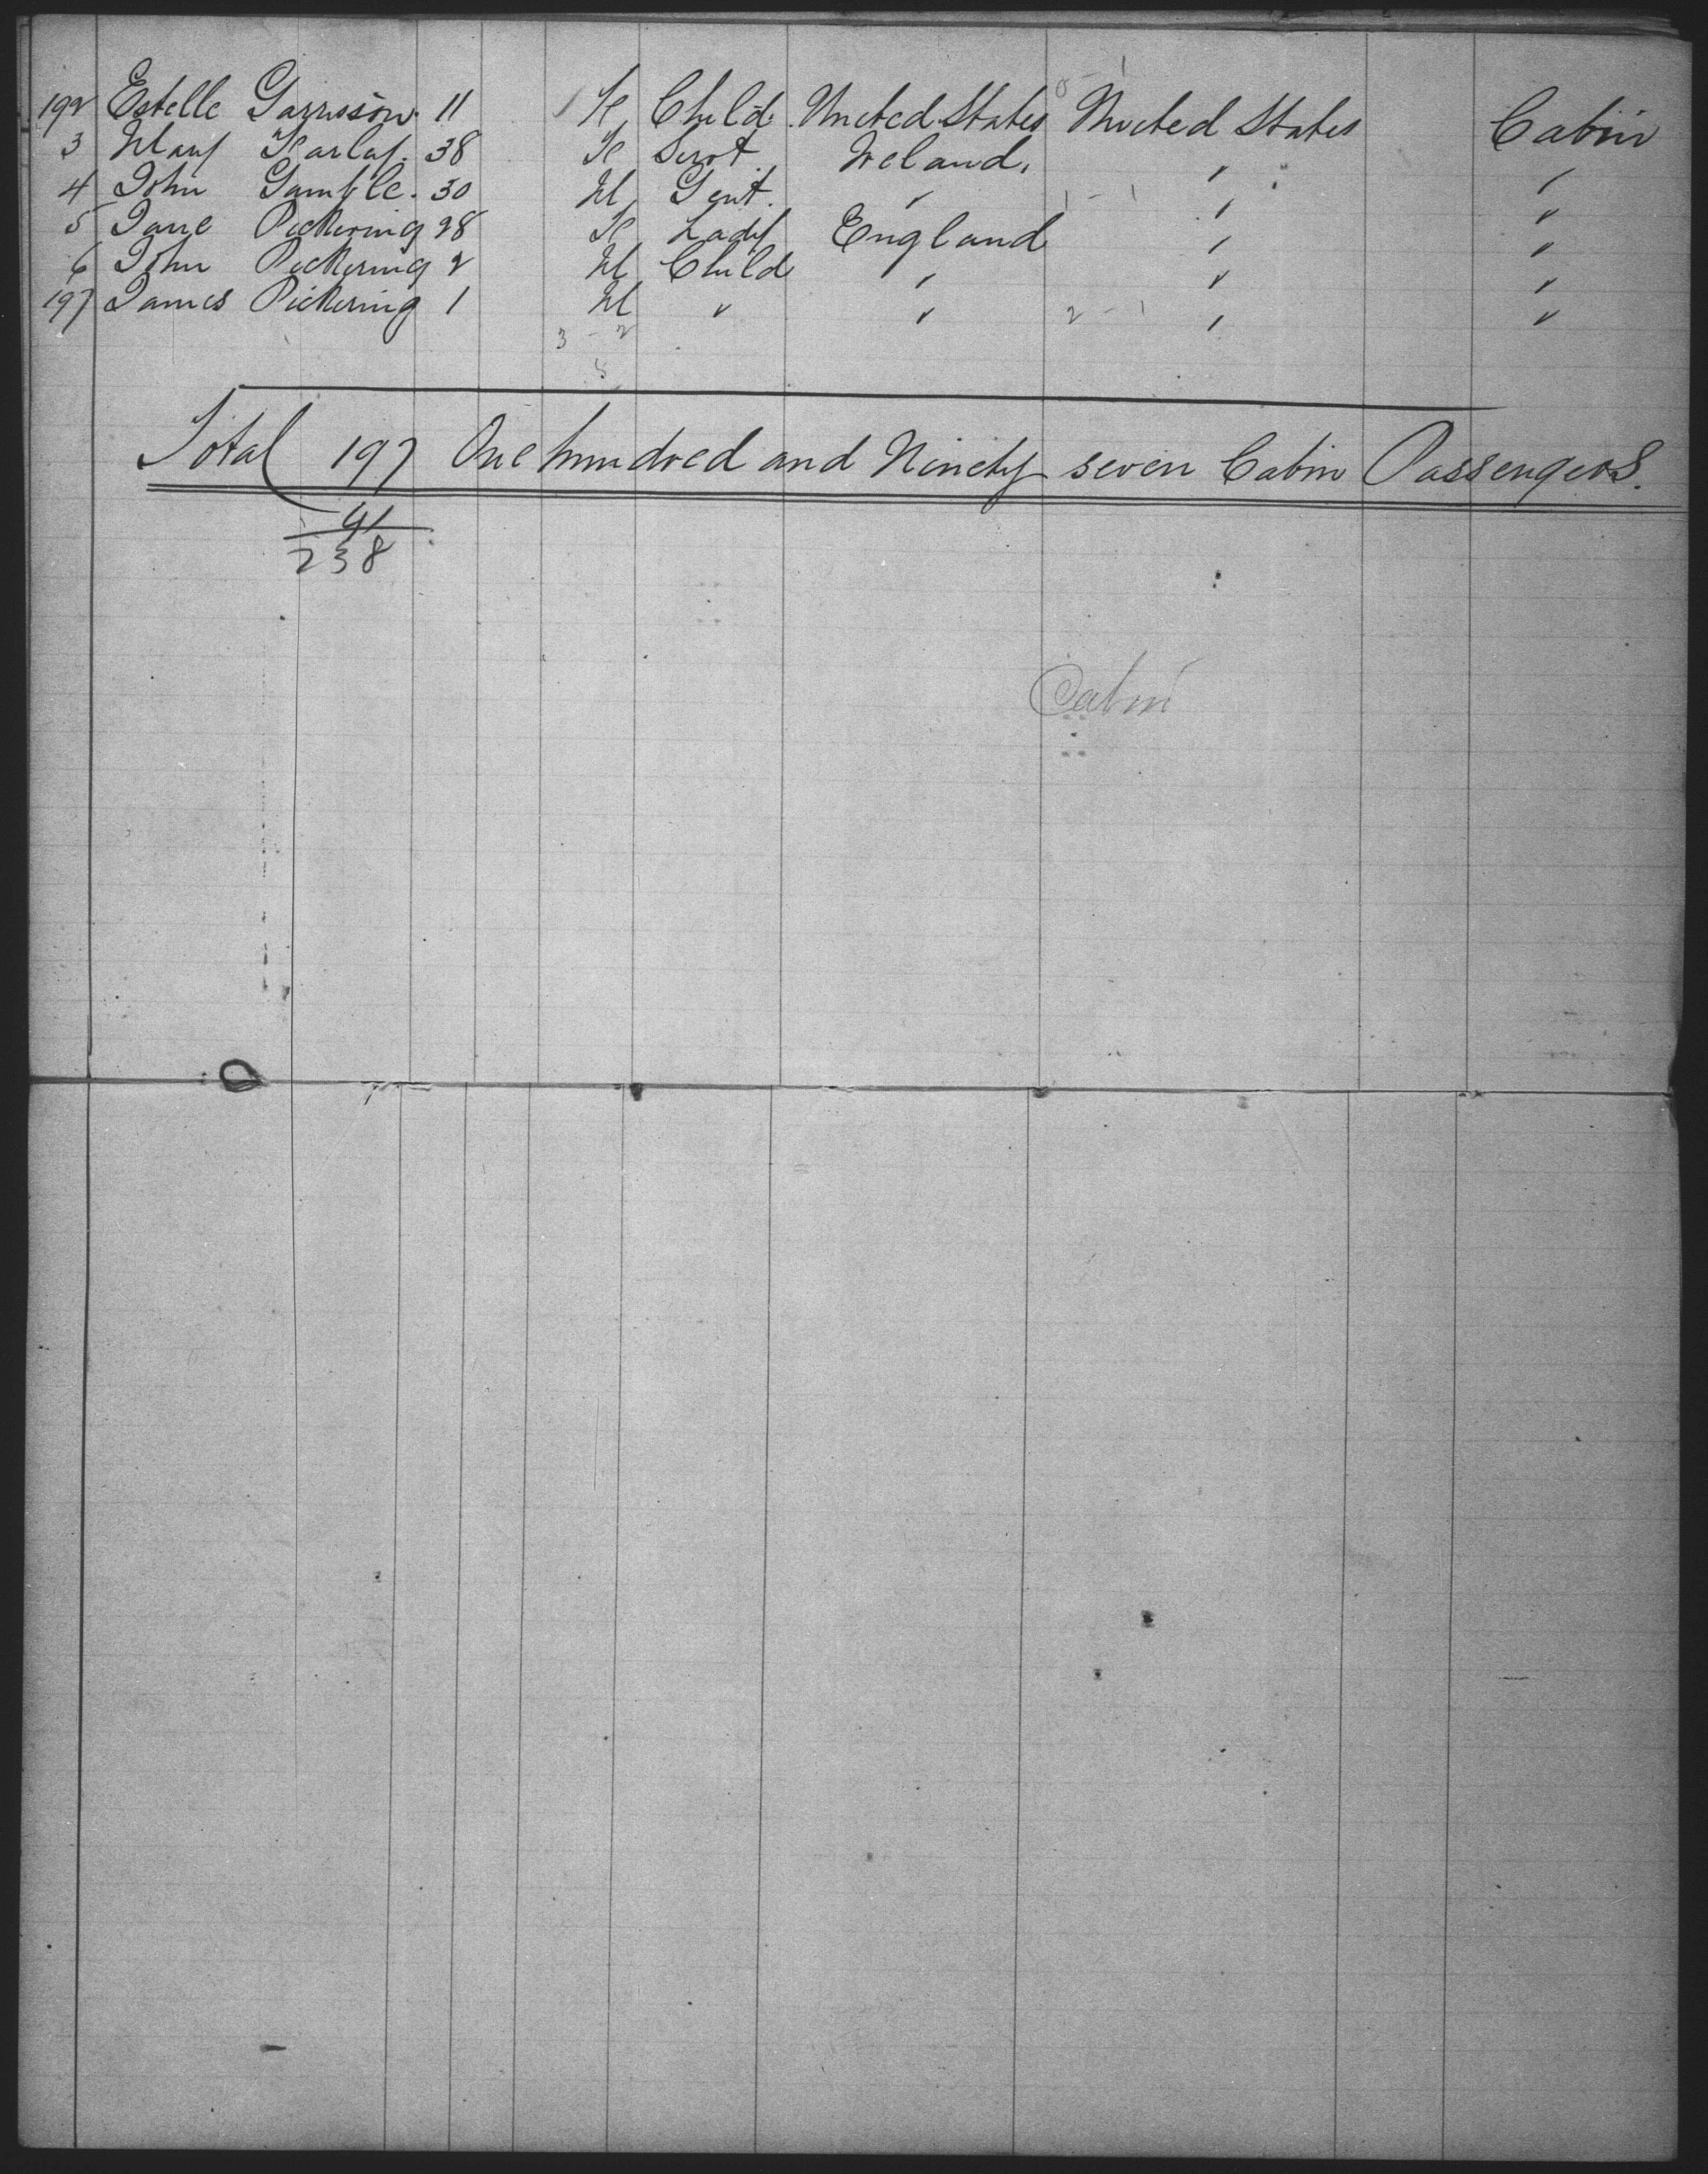 192 Estelle Garrison. 11 F Child. United States United States Cabin
3 Mary Farlay. 38 F Servt Ireland. " "
4 John Gamble. 30 M Gent. " " "
5 Jane Pickering 28 F Lady England " "
6 John Pickering 2 M Child " " "
197 James Pickering 1 M " " " "
3 - 2
Total 197 One hundred and Ninety seven Cabin Passengers.
41
238
Cabin